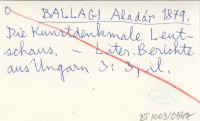 BALLAGI Aladár 1879.
Die Kunstdenkmale Leut-
schaus. – Liter. Berichte
aus Ungarn 3: 3, il.
BT1003/0547